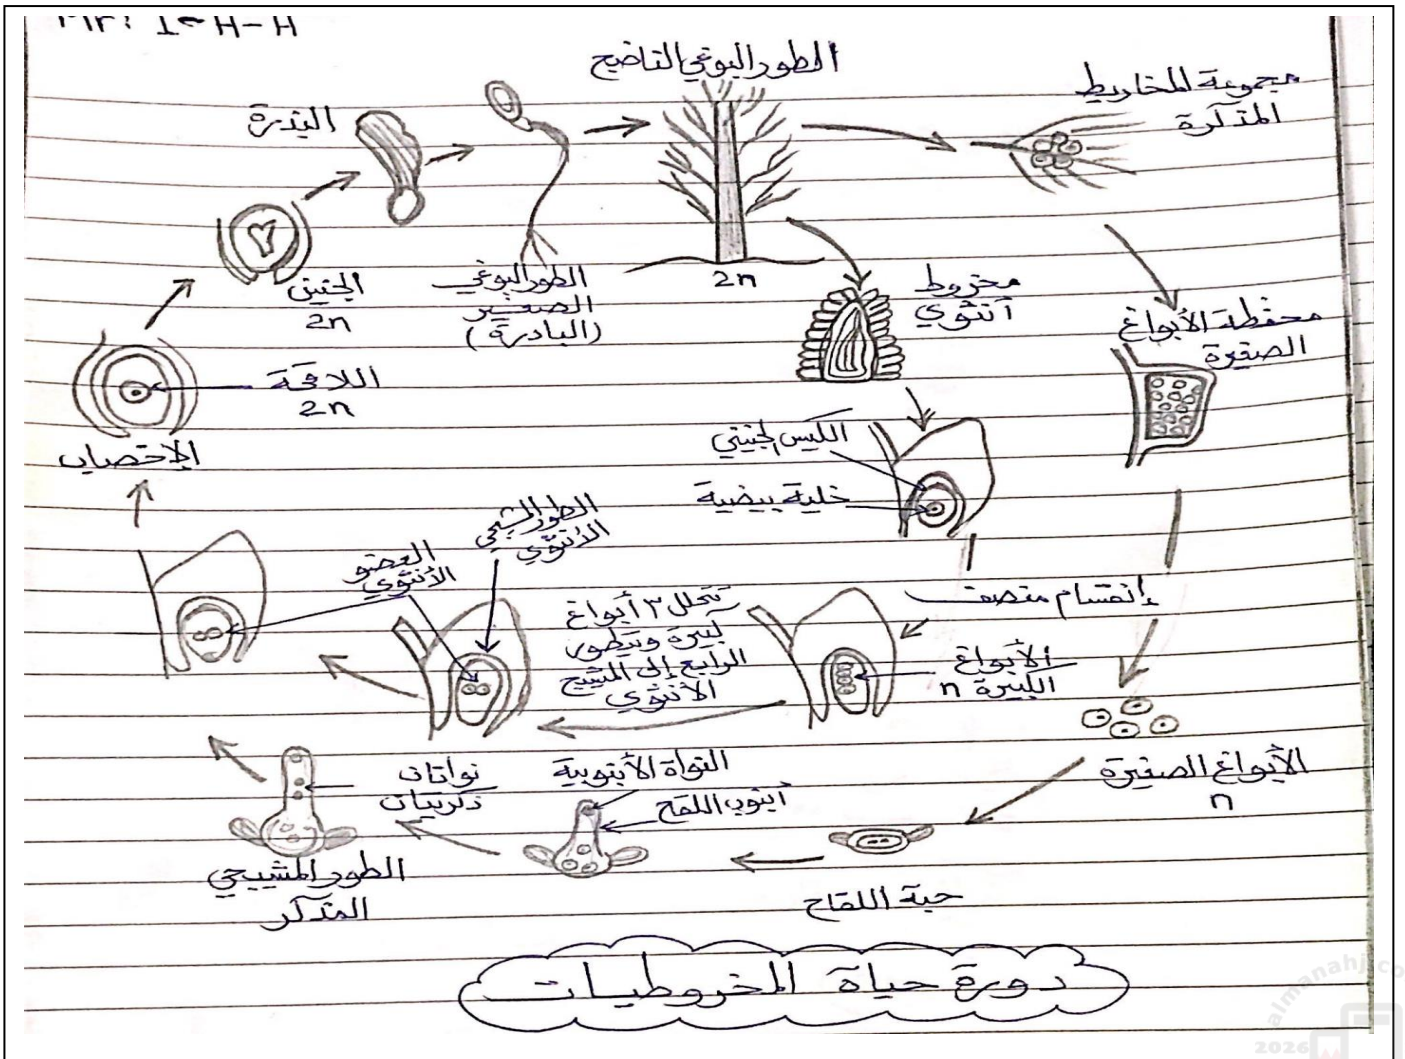 الطور البوغي الناضج
مجموعة المخاريط
المذكرة
البذرة
الجنين
2n
الطور البوغي
الصغير
(البادرة)
2n
مخروط
أنثوي
محفظة الأبواغ
الصغيرة
اللاقحة
2n
الإخصاب
الكيس الجنيني
خلية بيضية
الطور المشيجي
الأنثوي
العضو
الأنثوي
تتحلل ٣ أبواغ
كبيرة ويتطور
الرابع إلى المشيج
الأنثوي
إنقسام منصف
الأبواغ
الكبيرة n
الأبواغ الصغيرة
n
النواة الأنبوبية
أنبوب اللقاح
نواتان
ذكريتان
الطور المشيجي
المذكر
حبة اللقاح
دورة حياة المخروطيات
almanahj.co
2026